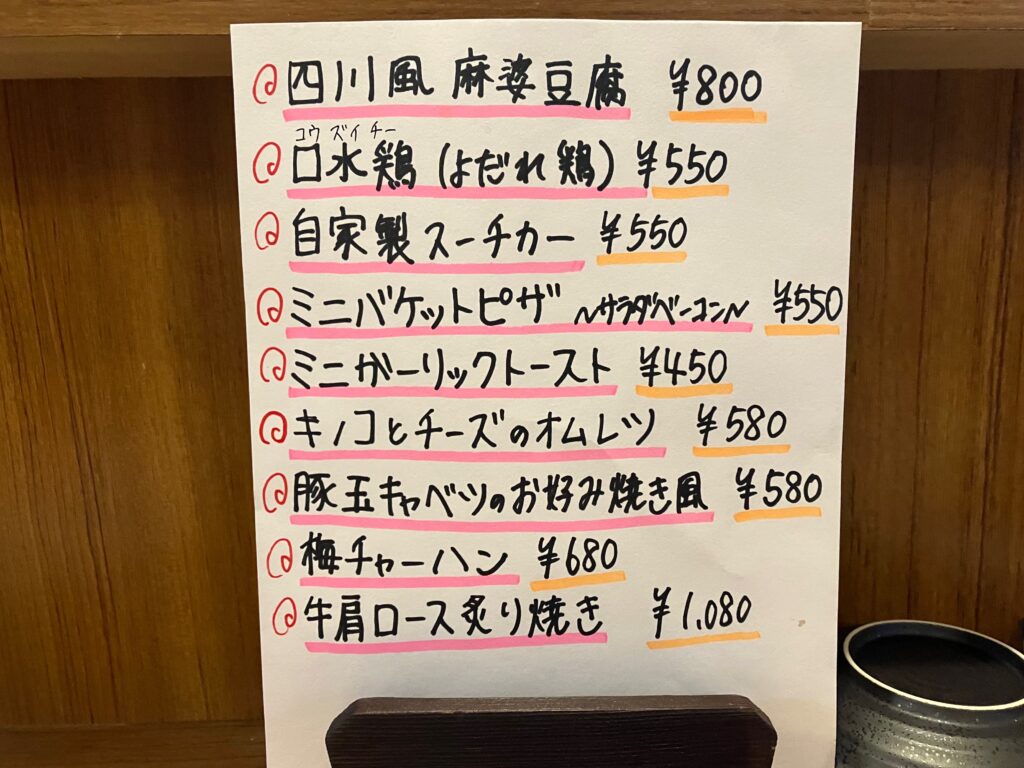 四川風 麻婆豆腐 ¥800
コウ ズイ チー
口水鶏(よだれ鶏) ¥550
自家製スーチカー ¥550
ミニバケットピザ 〜サラダベーコン〜 ¥550
ミニガーリックトースト ¥450
キノコとチーズのオムレツ ¥580
豚玉キャベツのお好み焼き風 ¥580
梅チャーハン ¥680
牛肩ロース炙り焼き ¥1,080